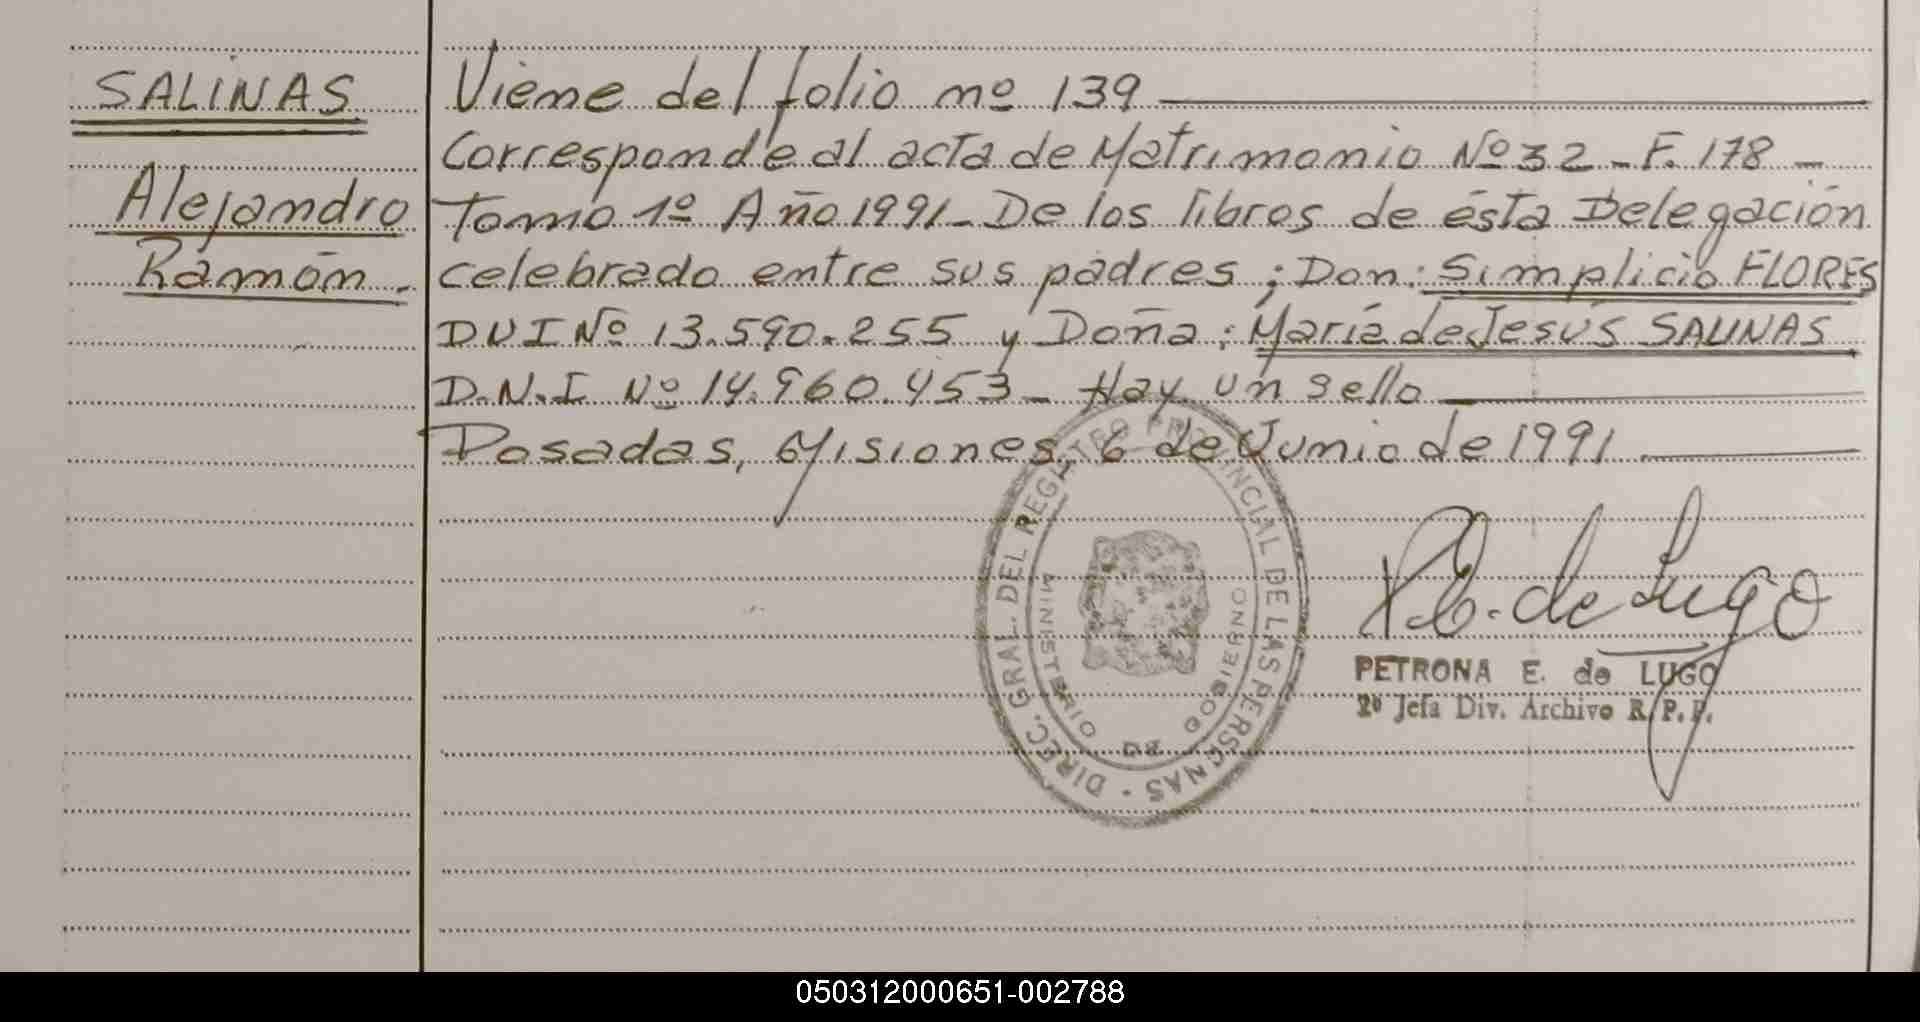 SALINAS
Alejandro
Ramón.
Viene del folio nº 139
Corresponde al acta de Matrimonio Nº 32 - F. 178 -
Tomo 1º Año 1991 - De los libros de ésta Delegación
celebrado entre sus padres; Don: Simplicio FLORES
DUI Nº 13.590.255 y Doña: María de Jesús SALINAS
D.N.I Nº 14.960.453 - Hay un sello
Posadas, Misiones, 6 de Junio de 1991
DIREC. GRAL. DEL REGISTRO PROVINCIAL DE LAS PERSONAS -
MINISTERIO DE GOBIERNO
P. E. de Lugo
PETRONA E. de LUGO
2º Jefa Div. Archivo R.P.P.
050312000651-002788